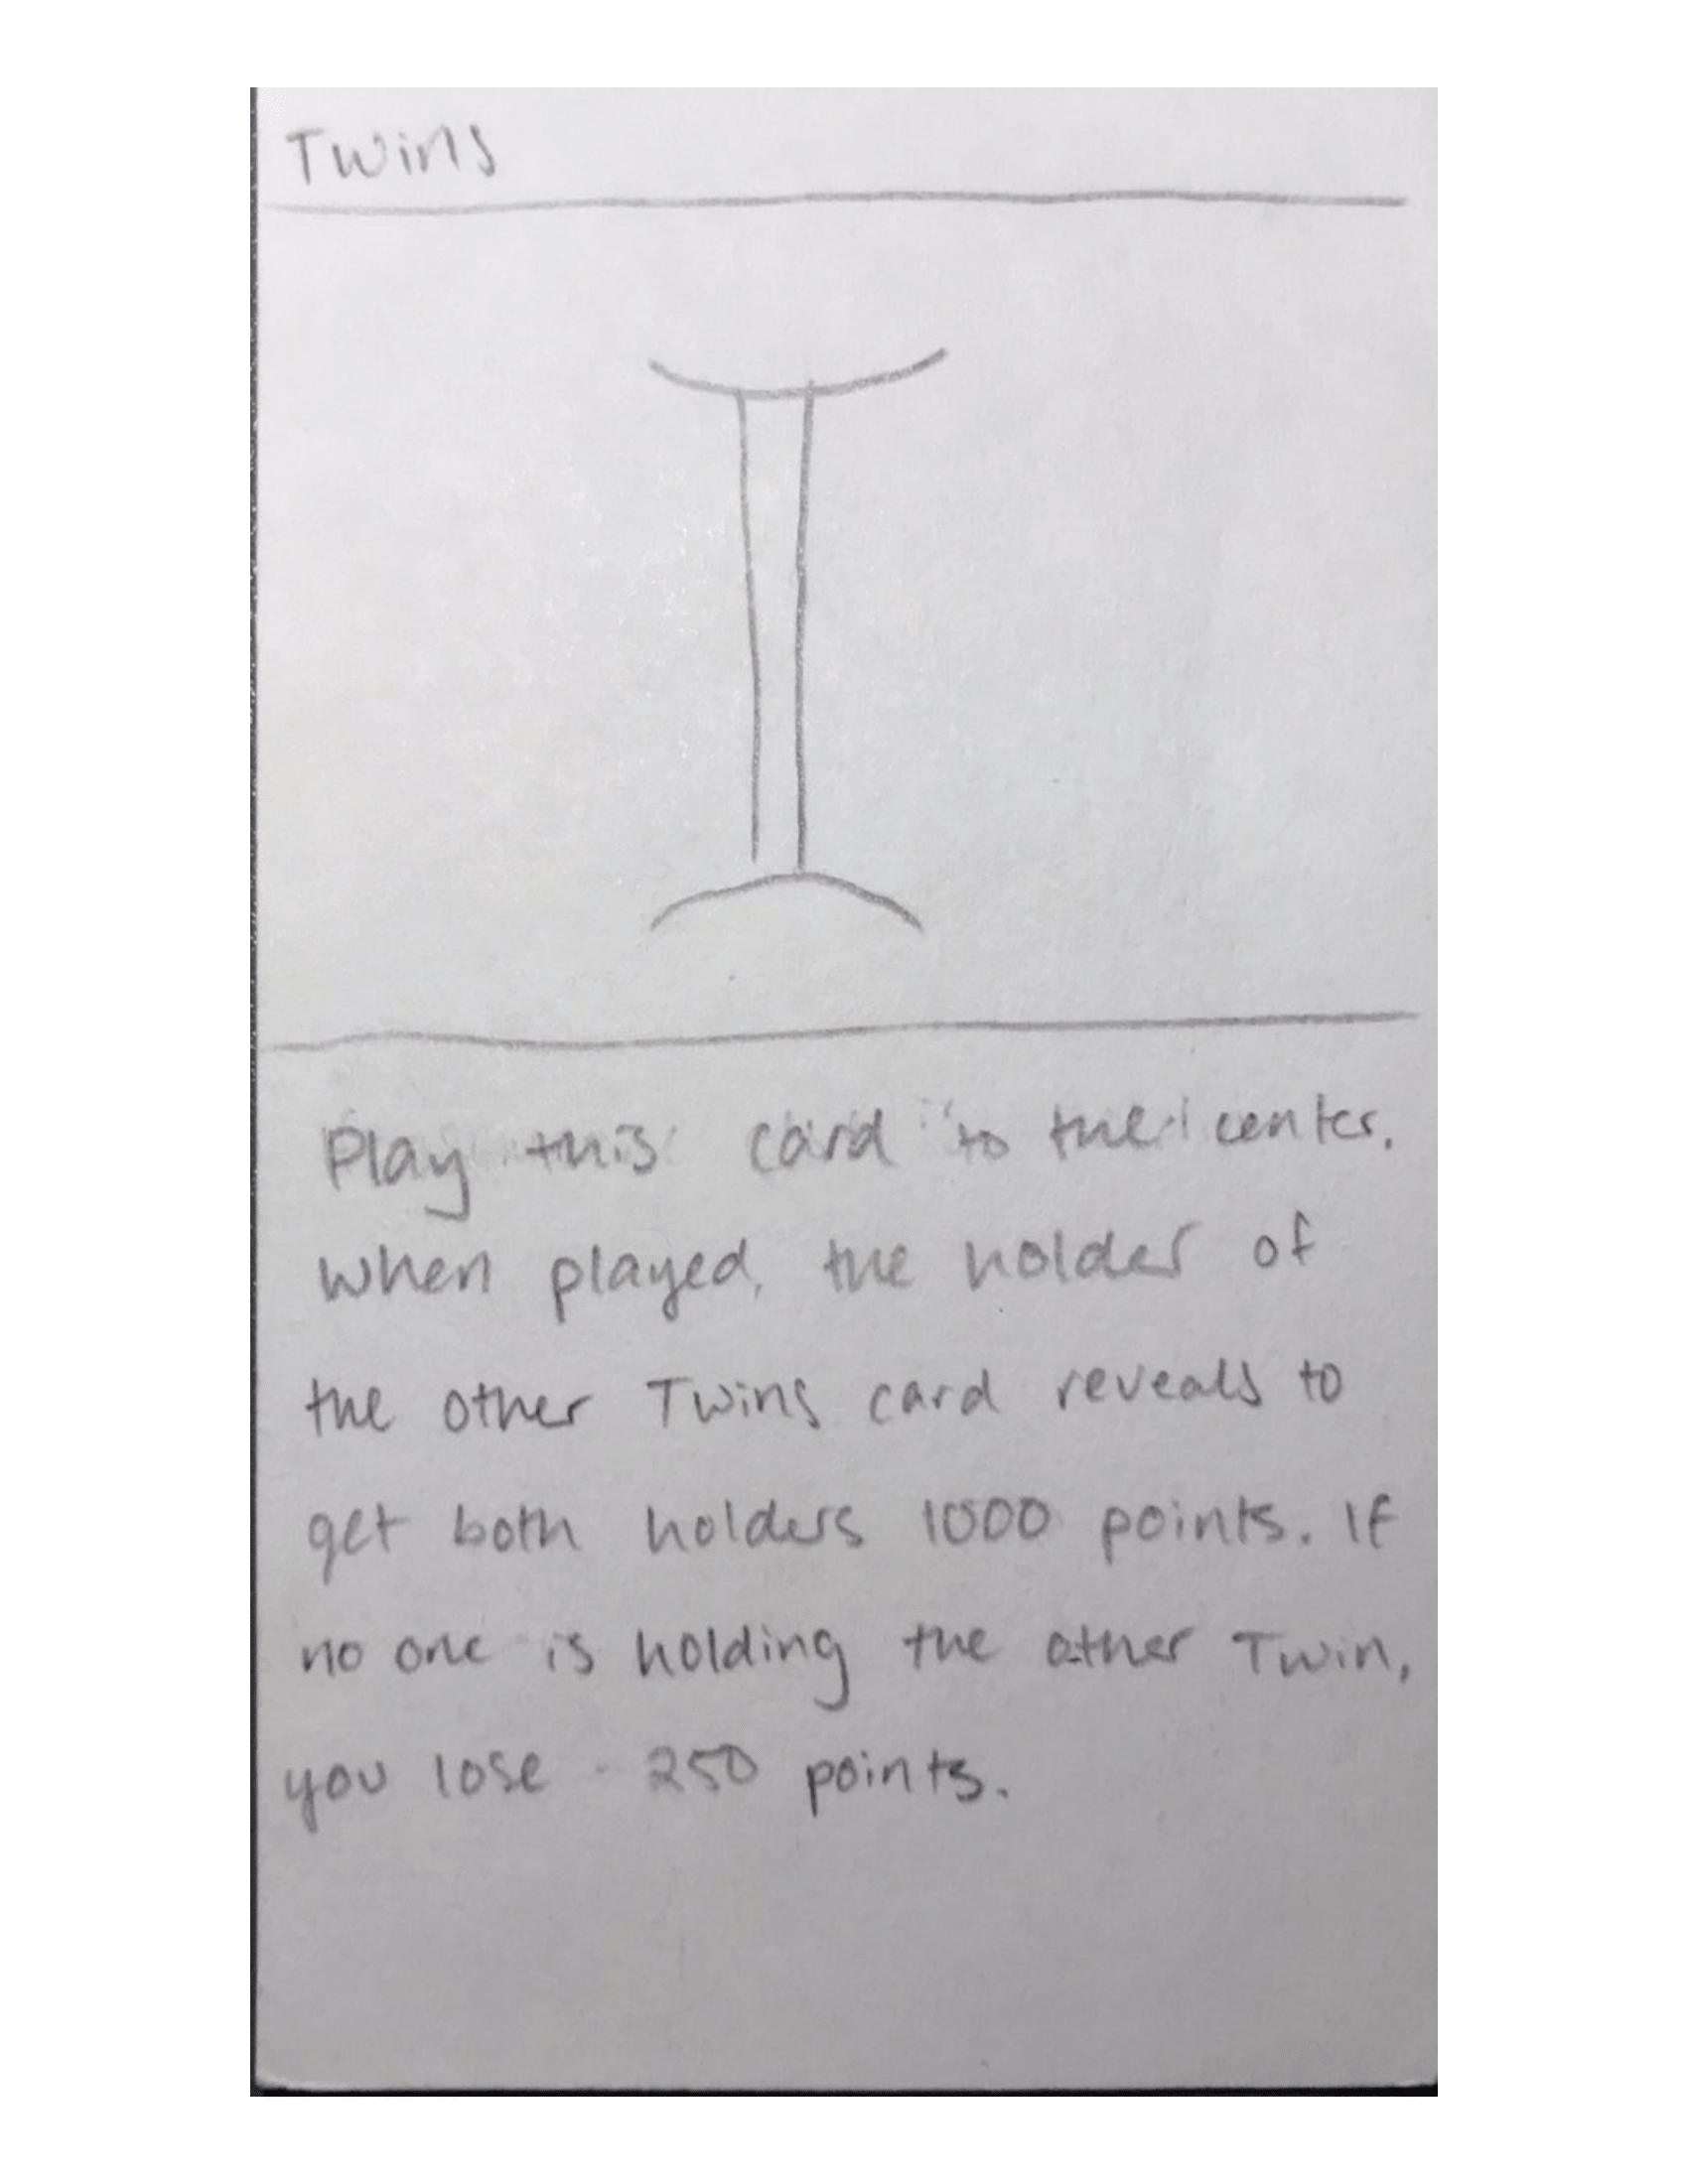 Twins
Play this card to the center.
When played, the holder of
the other Twins card reveals to
get both holders 1000 points. If
no one is holding the other Twin,
you lose - 250 points.